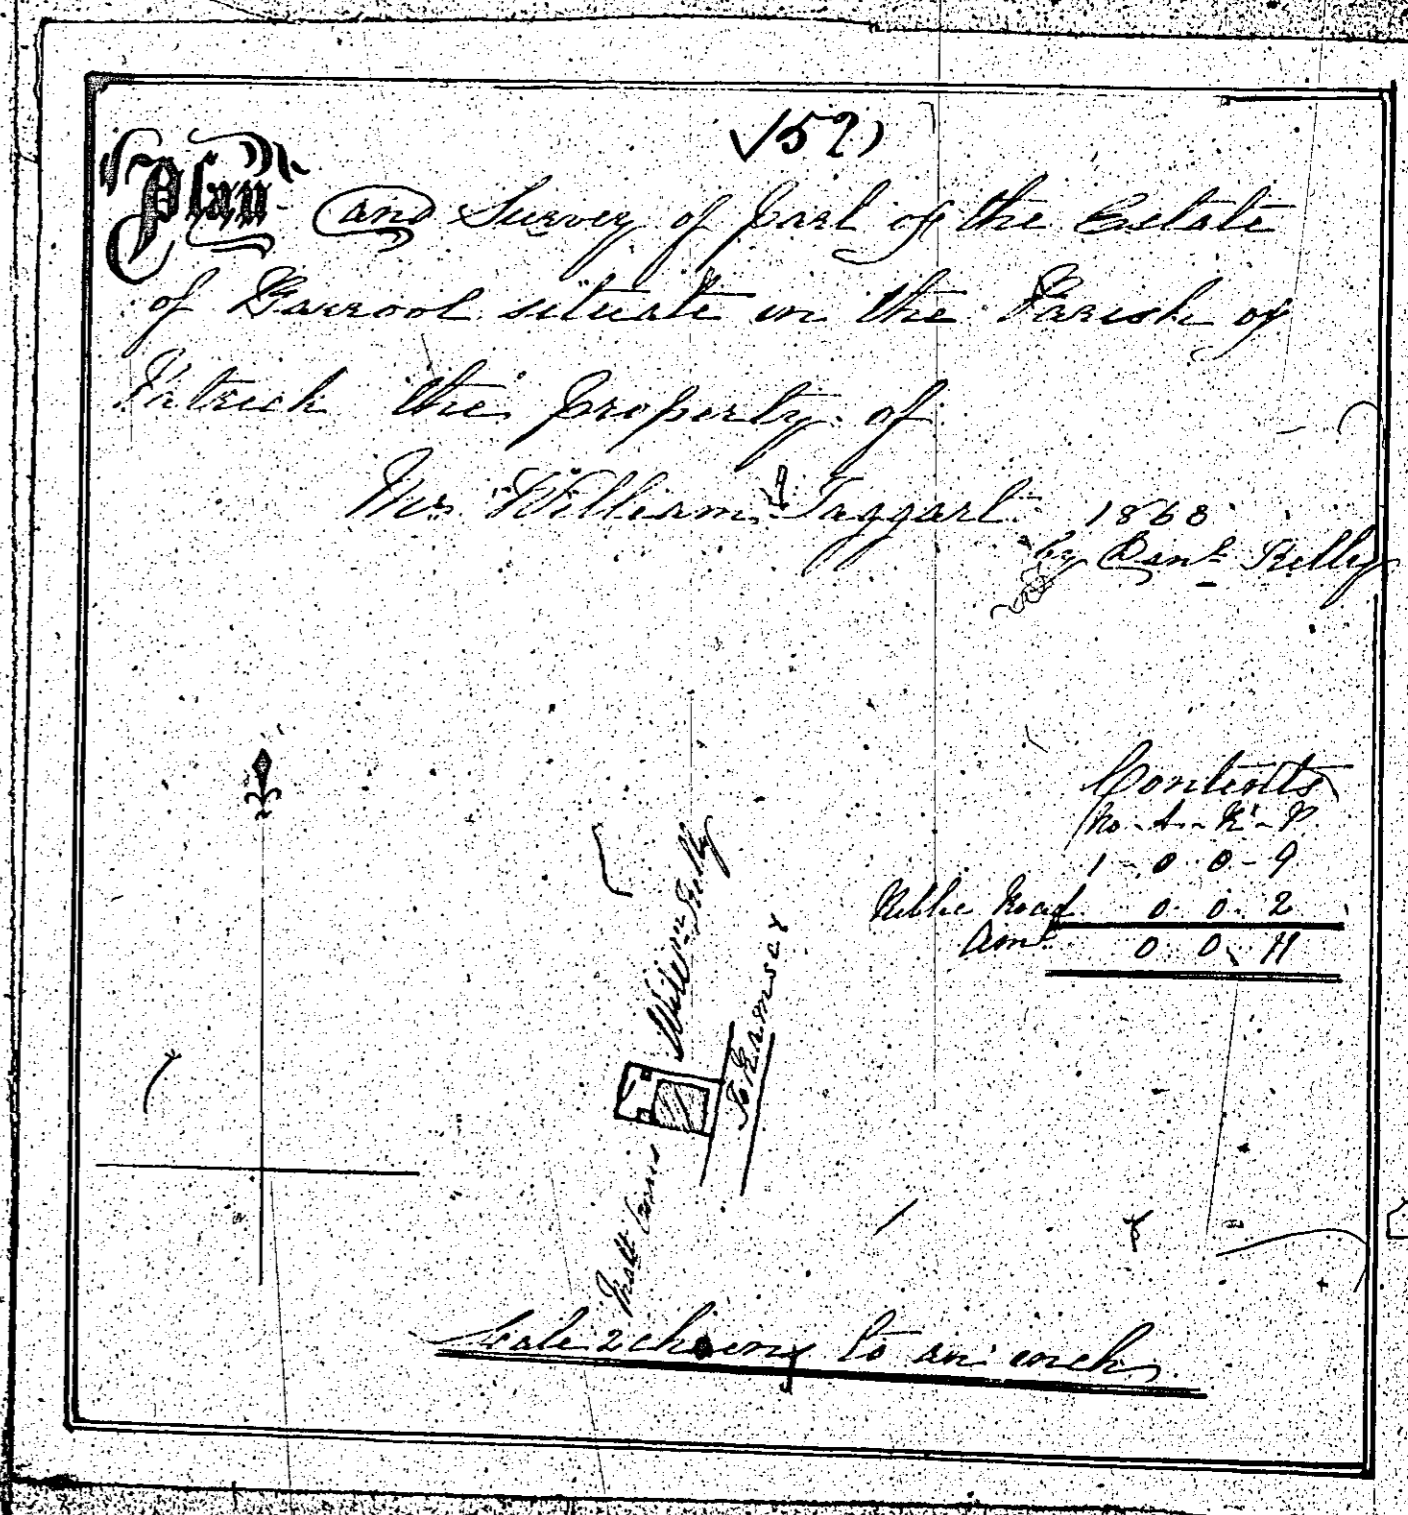 157)
Plan and Survey of Part of the Estate
of Barrool situate in the Parish of
Patrick the Property of
Mr. William Taggart 1868
by Danl Kelly
Contents
No - A - R - P
1 - 0 0 - 9
Public Road 0 . 0 . 2
Amt 0 0 11
William Kelly
To Ramsey
Scale 2 chains to an inch